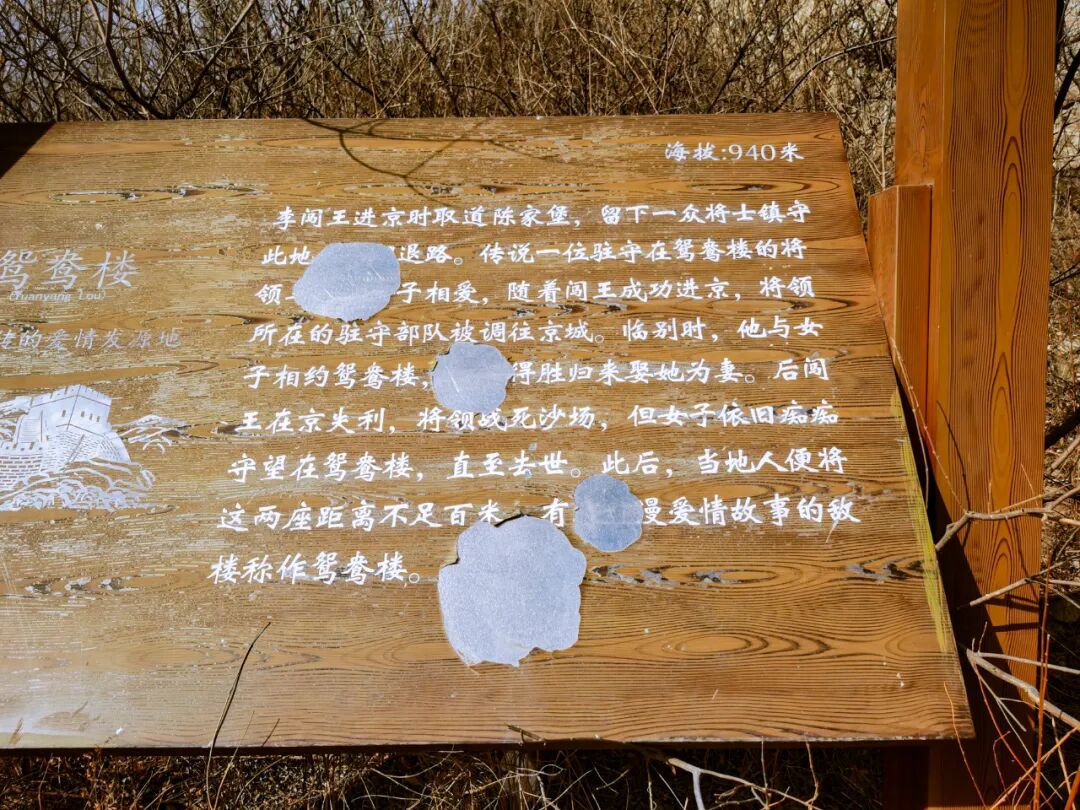 海拔:940米
鸳鸯楼
(Yuanyang Lou)
的爱情发源地
李闯王进京时取道陈家堡，留下一众将士镇守
此地 退路。传说一位驻守在鸳鸯楼的将
领 子相爱，随着闯王成功进京，将领
所在的驻守部队被调往京城。临别时，他与女
子相约鸳鸯楼， 得胜归来娶她为妻。后闯
王在京失利，将领战死沙场，但女子依旧痴痴
守望在鸳鸯楼，直至去世。此后，当地人便将
这两座距离不足百米 有 漫爱情故事的敌
楼称作鸳鸯楼。